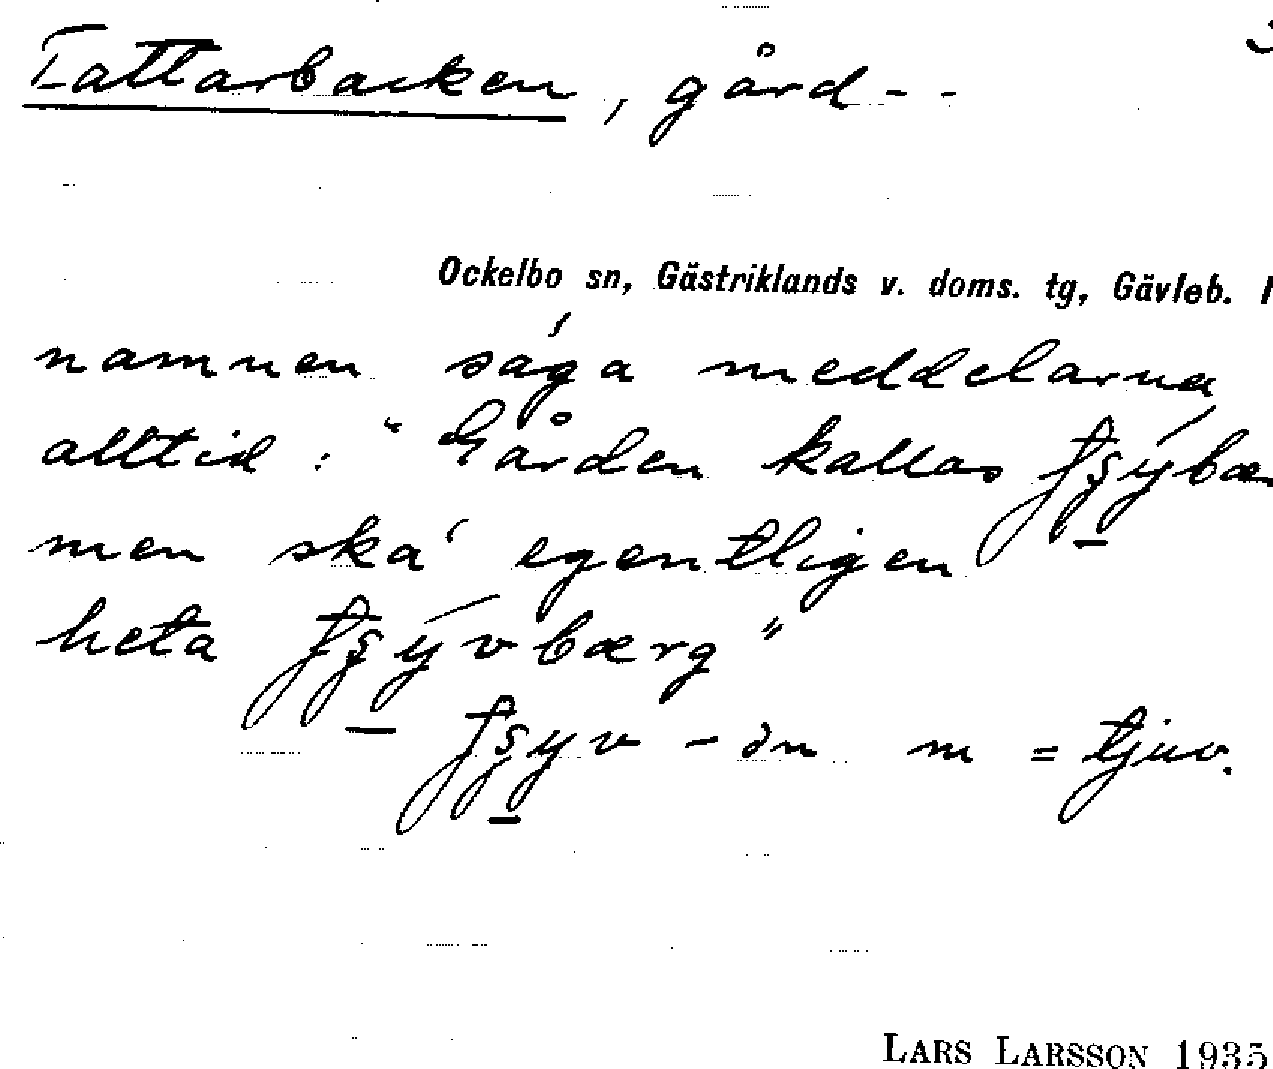 Tattarbacken, gård - -
Ockelbo sn, Gästriklands v. doms. tg, Gävleb.
namnen säga meddelarna
alltid: "Gården kallas
men ska' egentligen
heta
m = tjuv.
LARS LARSSON 1935